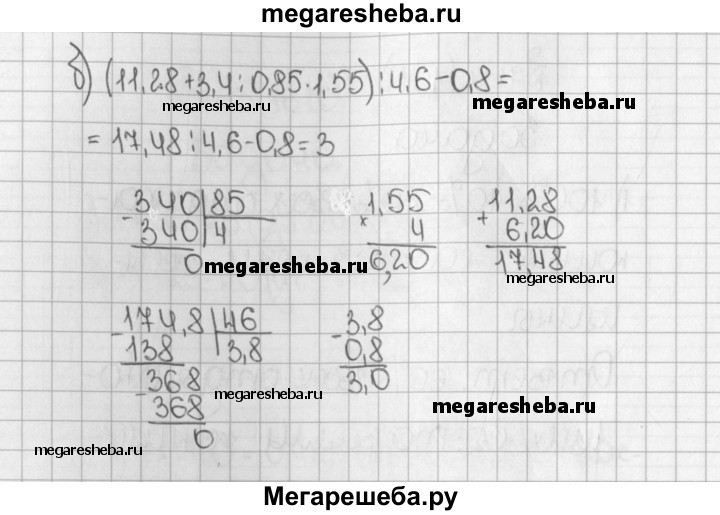 megaresheba.ru
б) (11,28+3,4:0,85·1,55):4,6-0,8=
megaresheba.ru megaresheba.ru
= 17,48:4,6-0,8=3
-340|85 1,55 11,28
340|4 × 4 + 6,20
0 6,20 17,48
megaresheba.ru megaresheba.ru
-174,8|46 -3,8
138 3,8 0,8
-368 3,0
368
0
megaresheba.ru megaresheba.ru
megaresheba.ru
Мегарешеба.ру